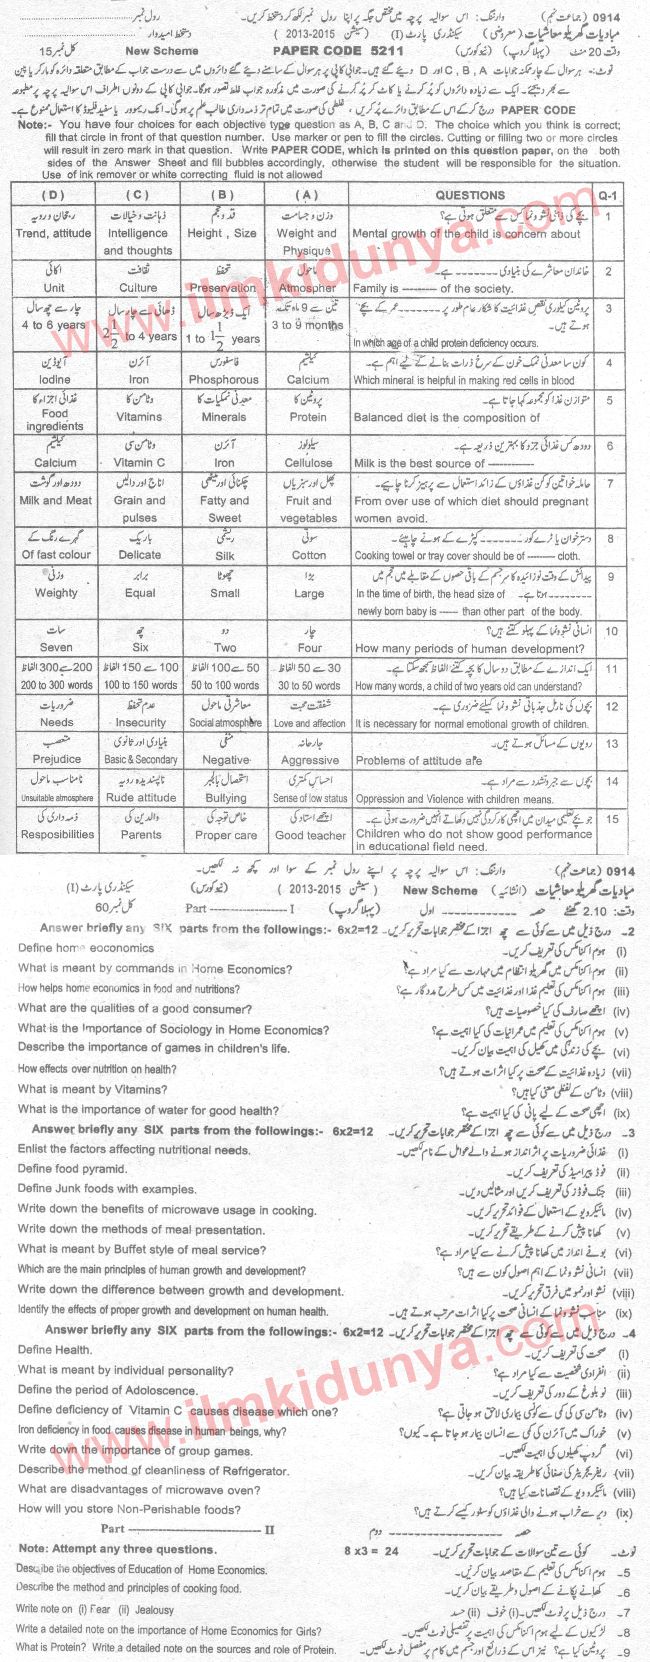 0914 (جماعت نہم) وارننگ: اس سوالیہ پرچہ میں مختص جگہ پر اپنا رول نمبر لکھ کر دستخط کریں۔ رول نمبر
مبادیات گھریلو معاشیات (معروضی) سیکنڈری پارٹ (I) (سیشن 2013-2015) دستخط امیدوار
وقت 20 منٹ (پہلا گروپ) (نیو کورس) PAPER CODE 5211 New Scheme کل نمبر 15
نوٹ:- ہر سوال کے چار ممکنہ جوابات A، B، C اور D دیئے گئے ہیں۔ جوابی کاپی پر ہر سوال کے سامنے دیئے گئے دائروں میں سے درست جواب کے مطابق متعلقہ دائرہ کو مارکر یا پین
سے بھر دیجئے۔ ایک سے زیادہ دائروں کو پُر کرنے یا کاٹ کر پُر کرنے کی صورت میں مذکورہ جواب غلط تصور ہو گا۔ جوابی کاپی کے دونوں اطراف اس سوالیہ پرچہ پر مطبوعہ
PAPER CODE درج کر کے اس کے مطابق دائرے پُر کریں، غلطی کی صورت میں تمام تر ذمہ داری طالب علم پر ہو گی۔ انک ریموور یا سفید فلیوڈ کا استعمال ممنوع ہے۔
Note:- You have four choices for each objective type question as A, B, C and D. The choice which you think is correct;
fill that circle in front of that question number. Use marker or pen to fill the circles. Cutting or filling two or more circles
will result in zero mark in that question. Write PAPER CODE, which is printed on this question paper, on the both
sides of the Answer Sheet and fill bubbles accordingly, otherwise the student will be responsible for the situation.
Use of ink remover or white correcting fluid is not allowed
( D ) ( C ) ( B ) ( A ) QUESTIONS Q-1
رجحان و رویہ ذہانت و خیالات قد و حجم وزن و جسامت بچے کی ذہنی نشوونما کس سے متعلق ہوتی ہے؟ 1
Trend, attitude Intelligence and thoughts Height , Size Weight and Physique Mental growth of the child is concern about
اکائی ثقافت تحفظ ماحول خاندان معاشرے کی بنیادی -------- ہے۔ 2
Unit Culture Preservation Atmospher Family is -------- of the society.
چار سے چھ سال ڈھائی سے چار سال ایک ڈیڑھ سال تین سے 9 ماہ تک پروٹین کیلوری نقص غذائیت کا شکار عام طور پر -------- عمر کے بچے ہوتے ہیں۔ 3
4 to 6 years 2 1/2 to 4 years 1 to 1 1/2 years 3 to 9 months In which age of a child protein deficiency occurs.
آیوڈین آئرن فاسفورس کیلشیم کون سا معدنی نمک خون کے سرخ ذرات بنانے کے لیے اہم ہے۔ 4
Iodine Iron Phosphorous Calcium Which mineral is helpful in making red cells in blood
غذائی اجزاء کا وٹامن کا معدنی نمکیات کا پروٹین کا متوازن غذا کو مجموعہ کہا جاتا ہے۔ 5
Food ingredients Vitamins Minerals Protein Balanced diet is the composition of
کیلشیم وٹامن سی آئرن سیلولوز دودھ کس غذائی جزو کا بہترین ذریعہ ہے۔ 6
Calcium Vitamin C Iron Cellulose Milk is the best source of ------------
دودھ اور گوشت اناج اور دالیں چکنائی اور میٹھی پھل اور سبزیاں حاملہ خواتین کو کن غذاؤں کے زائد استعمال سے پرہیز کرنا چاہیے۔ 7
Milk and Meat Grain and pulses Fatty and Sweet Fruit and vegetables From over use of which diet should pregnant women avoid.
گہرے رنگ کے باریک ریشمی سوتی دسترخوان یا ٹرے کور -------- کپڑے کے ہونے چاہیئے۔ 8
Of fast colour Delicate Silk Cotton Cooking towel or tray cover should be of -------- cloth.
وزنی برابر چھوٹا بڑا پیدائش کے وقت نوزائیدہ کا سر جسم کے باقی حصوں کے مقابلے میں حجم میں -------- ہوتا ہے۔ 9
Weighty Equal Small Large In the time of birth, the head size of newly born baby is ------ than other part of the body.
سات چھ دو چار انسانی نشوونما کے پہلو کتنے ہیں؟ 10
Seven Six Two Four How many periods of human development?
200 سے 300 الفاظ 100 سے 150 الفاظ 50 سے 100 الفاظ 30 سے 50 الفاظ ایک اندازے کے مطابق دو سال کا بچہ کتنے الفاظ سمجھ سکتا ہے۔ 11
200 to 300 words 100 to 150 words 50 to 100 words 30 to 50 words How many words, a child of two years old can understand?
ضروریات عدم تحفظ معاشرتی ماحول شفقت محبت بچوں کی نارمل جذباتی نشوونما کیلئے ضروری ہے۔ 12
Needs Insecurity Social atmosphere Love and affection It is necessary for normal emotional growth of children.
تعصب بنیادی اور ثانوی منفی جارحانہ رویوں کے مسائل ہوتے ہیں۔ 13
Prejudice Basic & Secondary Negative Aggressive Problems of attitude are
نامناسب ماحول ناپسندیدہ رویہ استحصال بالجبر احساس کمتری بچوں سے جبر و تشدد سے مراد ہے۔ 14
Unsuitable atmosphere Rude attitude Bullying Sense of low status Oppression and Violence with children means.
ذمہ داری کی والدین کی خاص توجہ کی اچھے استاد کی جو بچے تعلیمی میدان میں اچھی کارکردگی نہیں دکھاتے انہیں ضرورت ہوتی ہے۔ 15
Resposibilities Parents Proper care Good teacher Children who do not show good performance in educational field need.
0914 (جماعت نہم) وارننگ: اس سوالیہ پرچہ پر اپنے رول نمبر کے سوا اور کچھ نہ لکھیں۔
مبادیات گھریلو معاشیات (انشائیہ) New Scheme (سیشن 2013-2015) (نیو کورس) سیکنڈری پارٹ (I)
وقت: 2.10 گھنٹے حصہ ---------- اول (پہلا گروپ) Part -------------------- I کل نمبر 60
Answer briefly any SIX parts from the followings:- 6x2=12 2- درج ذیل میں سے کوئی سے چھ اجزا کے مختصر جوابات تحریر کریں۔
Define home eoconomics (i) ہوم اکنامکس کی تعریف کریں۔
What is meant by commands in Home Economics? (ii) ہوم اکنامکس میں گھریلو انتظام میں مہارت سے کیا مراد ہے؟
How helps home economics in food and nutritions? (iii) ہوم اکنامکس کی تعلیم غذا اور غذائیت میں کس طرح مددگار ہے؟
What are the qualities of a good consumer? (iv) اچھے صارف کی کیا خصوصیات ہیں؟
What is the Importance of Sociology in Home Economics? (v) ہوم اکنامکس کی تعلیم میں عمرانیات کی کیا اہمیت ہے؟
Describe the importance of games in children's life. (vi) بچے کی زندگی میں کھیل کی اہمیت بیان کریں۔
How effects over nutrition on health? (vii) زیادہ غذائیت کے صحت پر کیا اثرات ہوتے ہیں؟
What is meant by Vitamins? (viii) وٹامن کے لفظی معنی کیا ہیں؟
What is the importance of water for good health? (ix) اچھی صحت کے لیے پانی کی کیا اہمیت ہے؟
Answer briefly any SIX parts from the followings:- 6x2=12 3- درج ذیل میں سے کوئی سے چھ اجزا کے مختصر جوابات تحریر کریں۔
Enlist the factors affecting nutritional needs. (i) غذائی ضروریات پر اثر انداز ہونے والے عوامل کے نام لکھیں۔
Define food pyramid. (ii) فوڈ پیرامیڈ کی تعریف کریں۔
Define Junk foods with examples. (iii) جنک فوڈز کی تعریف کریں اور مثالیں دیں۔
Write down the benefits of microwave usage in cooking. (iv) مائیکرو ویو کے استعمال کے فوائد تحریر کریں۔
Write down the methods of meal presentation. (v) کھانا پیش کرنے کے طریقے تحریر کریں۔
What is meant by Buffet style of meal service? (vi) بوفے انداز میں کھانا پیش کرنے سے کیا مراد ہے؟
Which are the main principles of human growth and development? (vii) انسانی نشوونما کے اہم اصول کون سے ہیں؟
Write down the difference between growth and development. (viii) نشو اور نمو میں فرق تحریر کریں۔
Identify the effects of proper growth and development on human health. (ix) مناسب نشوونما کے انسانی صحت پر کیا اثرات مرتب ہوتے ہیں۔
Answer briefly any SIX parts from the followings:- 6x2=12 4- درج ذیل میں سے کوئی سے چھ اجزا کے مختصر جوابات تحریر کریں۔
Define Health. (i) صحت کی تعریف کریں۔
What is meant by individual personality? (ii) انفرادی شخصیت سے کیا مراد ہے؟
Define the period of Adoloscence. (iii) نوبلوغ کے دور کی تعریف کریں۔
Define deficiency of Vitamin C causes disease which one? (iv) وٹامن سی کی کمی سے کونسی بیماری لاحق ہو جاتی ہے؟
Iron deficiency in food causes disease in human beings, why? (v) خوراک میں آئرن کی کمی سے انسان بیمار ہو جاتا ہے۔ کیوں؟
Write down the importance of group games. (vi) گروپ کھیلوں کی اہمیت لکھیں۔
Describe the method of cleanliness of Refrigerator. (vii) ریفریجریٹر کی صفائی کا طریقہ بیان کریں۔
What are disadvantages of microwave oven? (viii) مائیکرو ویو کے نقصانات کیا ہیں؟
How will you store Non-Perishable foods? (ix) دیر سے خراب ہونے والی غذاؤں کو سٹور کیسے کرتے ہیں؟
Part -------------------- II حصہ -------------------- دوم
Note: Attempt any three questions. 8 x3 = 24 نوٹ۔ کوئی سے تین سوالات کے جوابات تحریر کریں۔
Describe the objectives of Education of Home Economics. 5- ہوم اکنامکس کی تعلیم کے مقاصد بیان کریں۔
Describe the method and principles of cooking food. 6- کھانے پکانے کے اصول و طریقے بیان کریں۔
Write note on (i) Fear (ii) Jealousy 7- درج ذیل پر نوٹ لکھیں۔ (i) خوف (ii) حسد
Write a detailed note on the importance of Home Economics for Girls? 8- لڑکیوں کے لیے ہوم اکنامکس کی اہمیت پر تفصیلی نوٹ لکھیں۔
What is Protein? Write a detailed note on the sources and role of Protein. 9- پروٹین کیا ہے؟ نیز اس کے ذرائع اور جسم میں کام پر مفصل نوٹ لکھیں۔
www.ilmkidunya.com
www.ilmkidunya.com